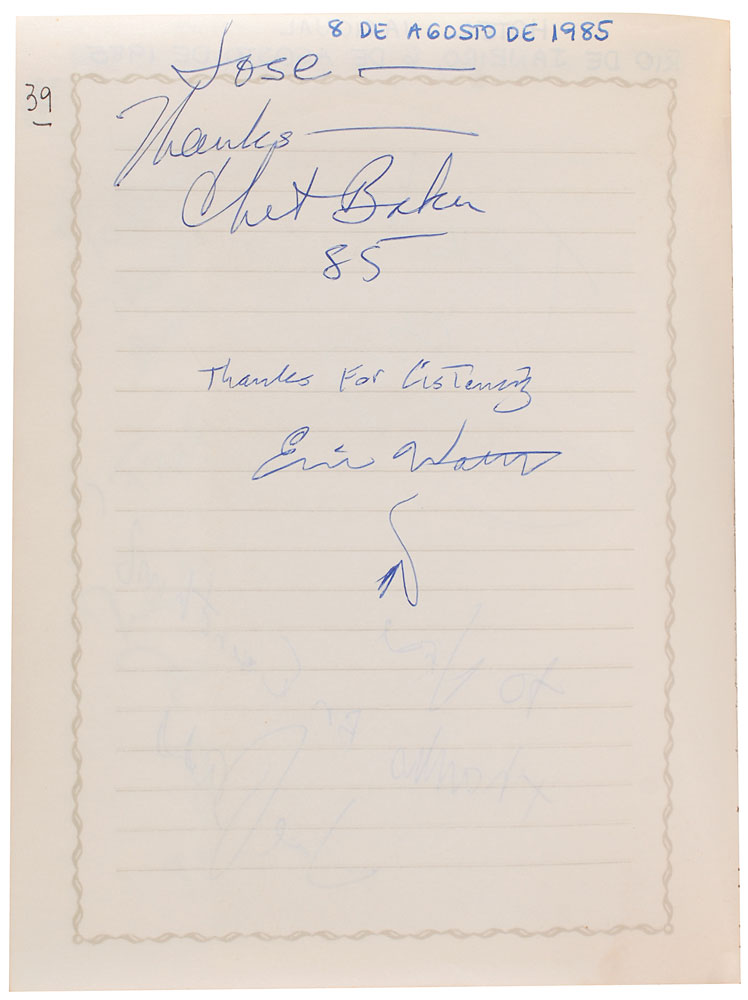 8 DE AGOSTO DE 1985
Jose
39
Thanks
Chet Baker
85
Thanks For Listening
Eric